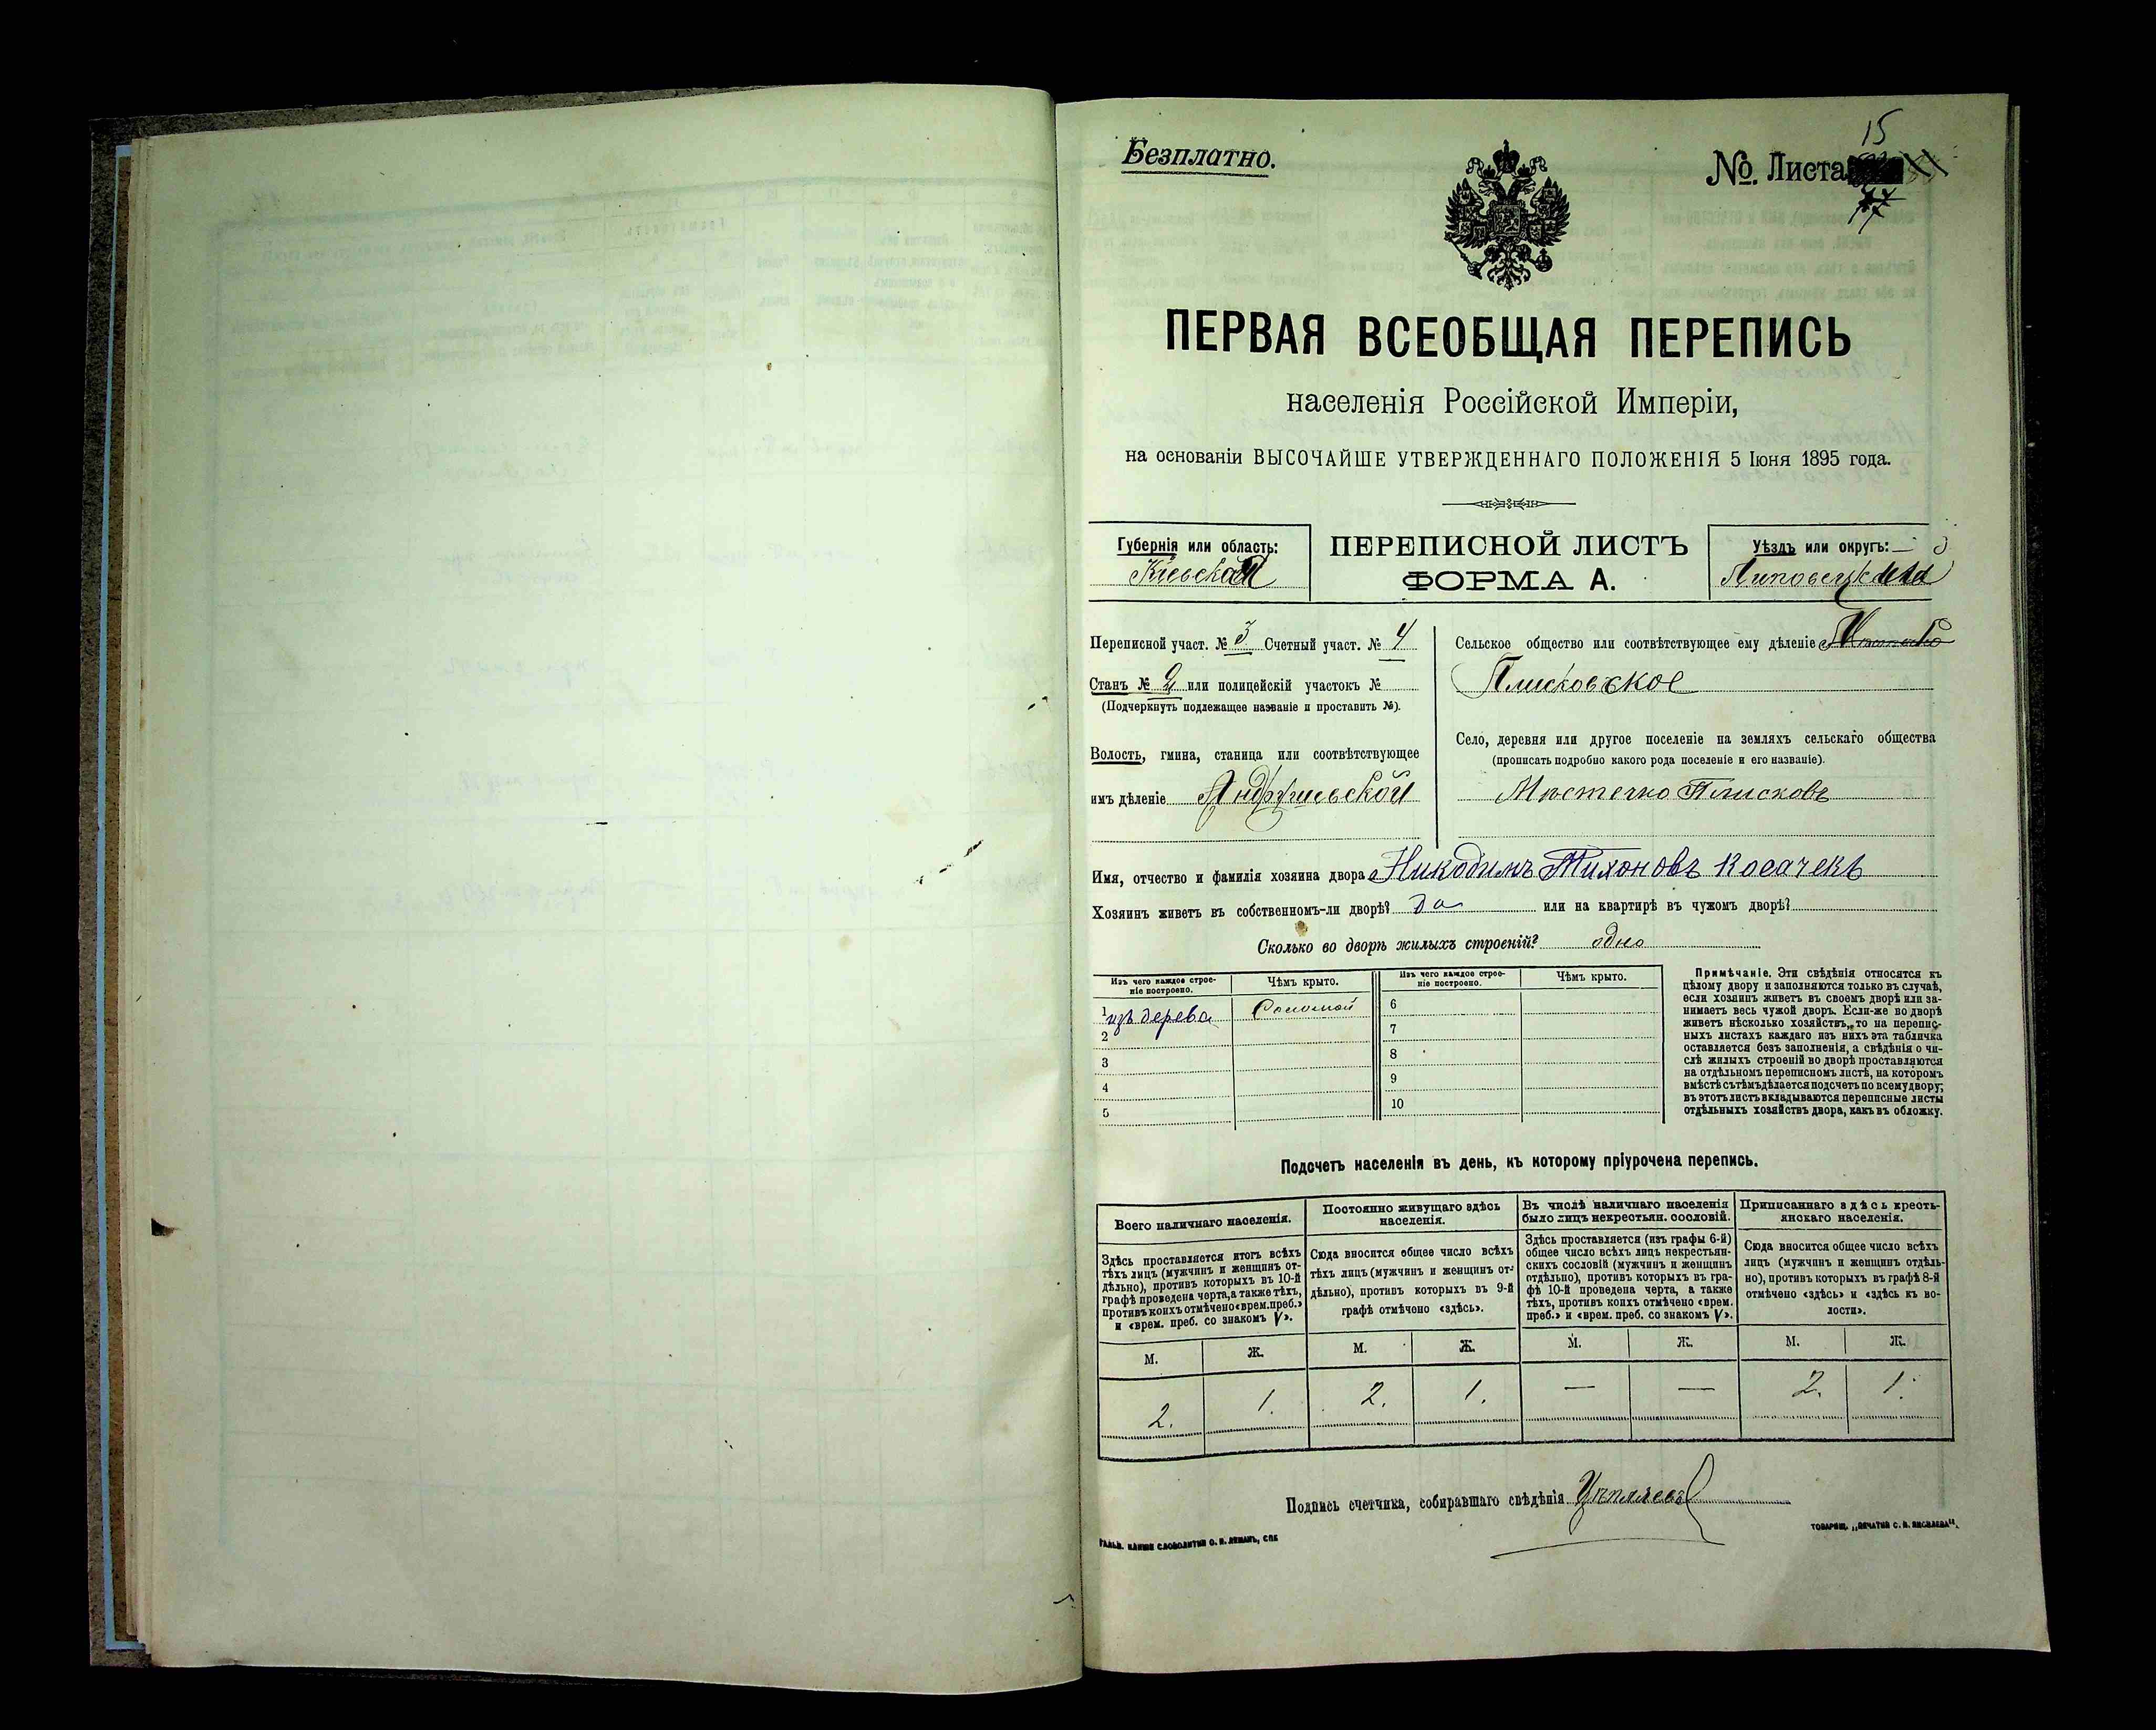 Безплатно.
№ Листа
15
17
ПЕРВАЯ ВСЕОБЩАЯ ПЕРЕПИСЬ
населенія Россійской Имперіи,
на основаніи ВЫСОЧАЙШЕ УТВЕРЖДЕННАГО ПОЛОЖЕНІЯ 5 Іюня 1895 года.
Губернія или область:
Кіевская
ПЕРЕПИСНОЙ ЛИСТЪ
ФОРМА А.
Уѣздъ или округъ:
Липовецкій
Переписной участ. № 3 Счетный участ. № 4
Станъ № 2 или полицейскій участокъ №
(Подчеркнуть подлежащее названіе и проставить №).
Волость, гмина, станица или соотвѣтствующее
имъ дѣленіе Андрушевской
Сельское общество или соотвѣтствующее ему дѣленіе
Плисковское
Село, деревня или другое поселеніе на земляхъ сельскаго общества
(прописать подробно какого рода поселеніе и его названіе).
Мѣстечко Плисковъ
Имя, отчество и фамилія хозяина двора Никодимъ Тихоновъ Косачекъ
Хозяинъ живетъ въ собственномъ-ли дворѣ? да или на квартирѣ въ чужомъ дворѣ?
Сколько во дворѣ жилыхъ строеній? одно
Изъ чего каждое строе-
ніе построено.
Чѣмъ крыто.
1 изъ дерева Соломой
2
3
4
5
Изъ чего каждое строе-
ніе построено.
Чѣмъ крыто.
6
7
8
9
10
Примѣчаніе. Эти свѣдѣнія относятся къ
цѣлому двору и заполняются только въ случаѣ,
если хозяинъ живетъ въ своемъ дворѣ или за-
нимаетъ весь чужой дворъ. Если-же во дворѣ
живетъ нѣсколько хозяйствъ, то на перепис-
ныхъ листахъ каждаго изъ нихъ эта табличка
оставляется безъ заполненія, а свѣдѣнія о чи-
слѣ жилыхъ строеній во дворѣ проставляются
на отдѣльномъ переписномъ листѣ, на которомъ
вмѣстѣ съ тѣмъ дѣлается подсчетъ по всему двору;
въ этотъ листъ вкладываются переписные листы
отдѣльныхъ хозяйствъ двора, какъ въ обложку.
Подсчетъ населенія въ день, къ которому пріурочена перепись.
Всего наличнаго населенія.
Здѣсь проставляется итогъ всѣхъ
тѣхъ лицъ (мужчинъ и женщинъ от-
дѣльно), противъ которыхъ въ 10-й
графѣ проведена черта, а также тѣхъ,
противъ коихъ отмѣчено «врем. преб.»
и «врем. преб. со знакомъ V».
М. Ж.
2. 1.
Постоянно живущаго здѣсь
населенія.
Сюда вносится общее число всѣхъ
тѣхъ лицъ (мужчинъ и женщинъ от-
дѣльно), противъ которыхъ въ 9-й
графѣ отмѣчено «здѣсь».
М. Ж.
2. 1.
Въ числѣ наличнаго населенія
было лицъ некрестьян. сословій.
Здѣсь проставляется (изъ графы 6-й)
общее число всѣхъ лицъ некрестьян-
скихъ сословій (мужчинъ и женщинъ
отдѣльно), противъ которыхъ въ гра-
фѣ 10-й проведена черта, а также
тѣхъ, противъ коихъ отмѣчено «врем.
преб.» и «врем. преб. со знакомъ V».
М. Ж.
— —
Приписаннаго здѣсь кресть-
янскаго населенія.
Сюда вносится общее число всѣхъ
лицъ (мужчинъ и женщинъ отдѣль-
но), противъ которыхъ въ графѣ 8-й
отмѣчено «здѣсь» и «здѣсь къ во-
лости».
М. Ж.
2. 1.
Подпись счетчика, собиравшаго свѣдѣнія
ТОВАРИЩ. „ПЕЧАТНЯ С. П. ЯКОВЛЕВА".